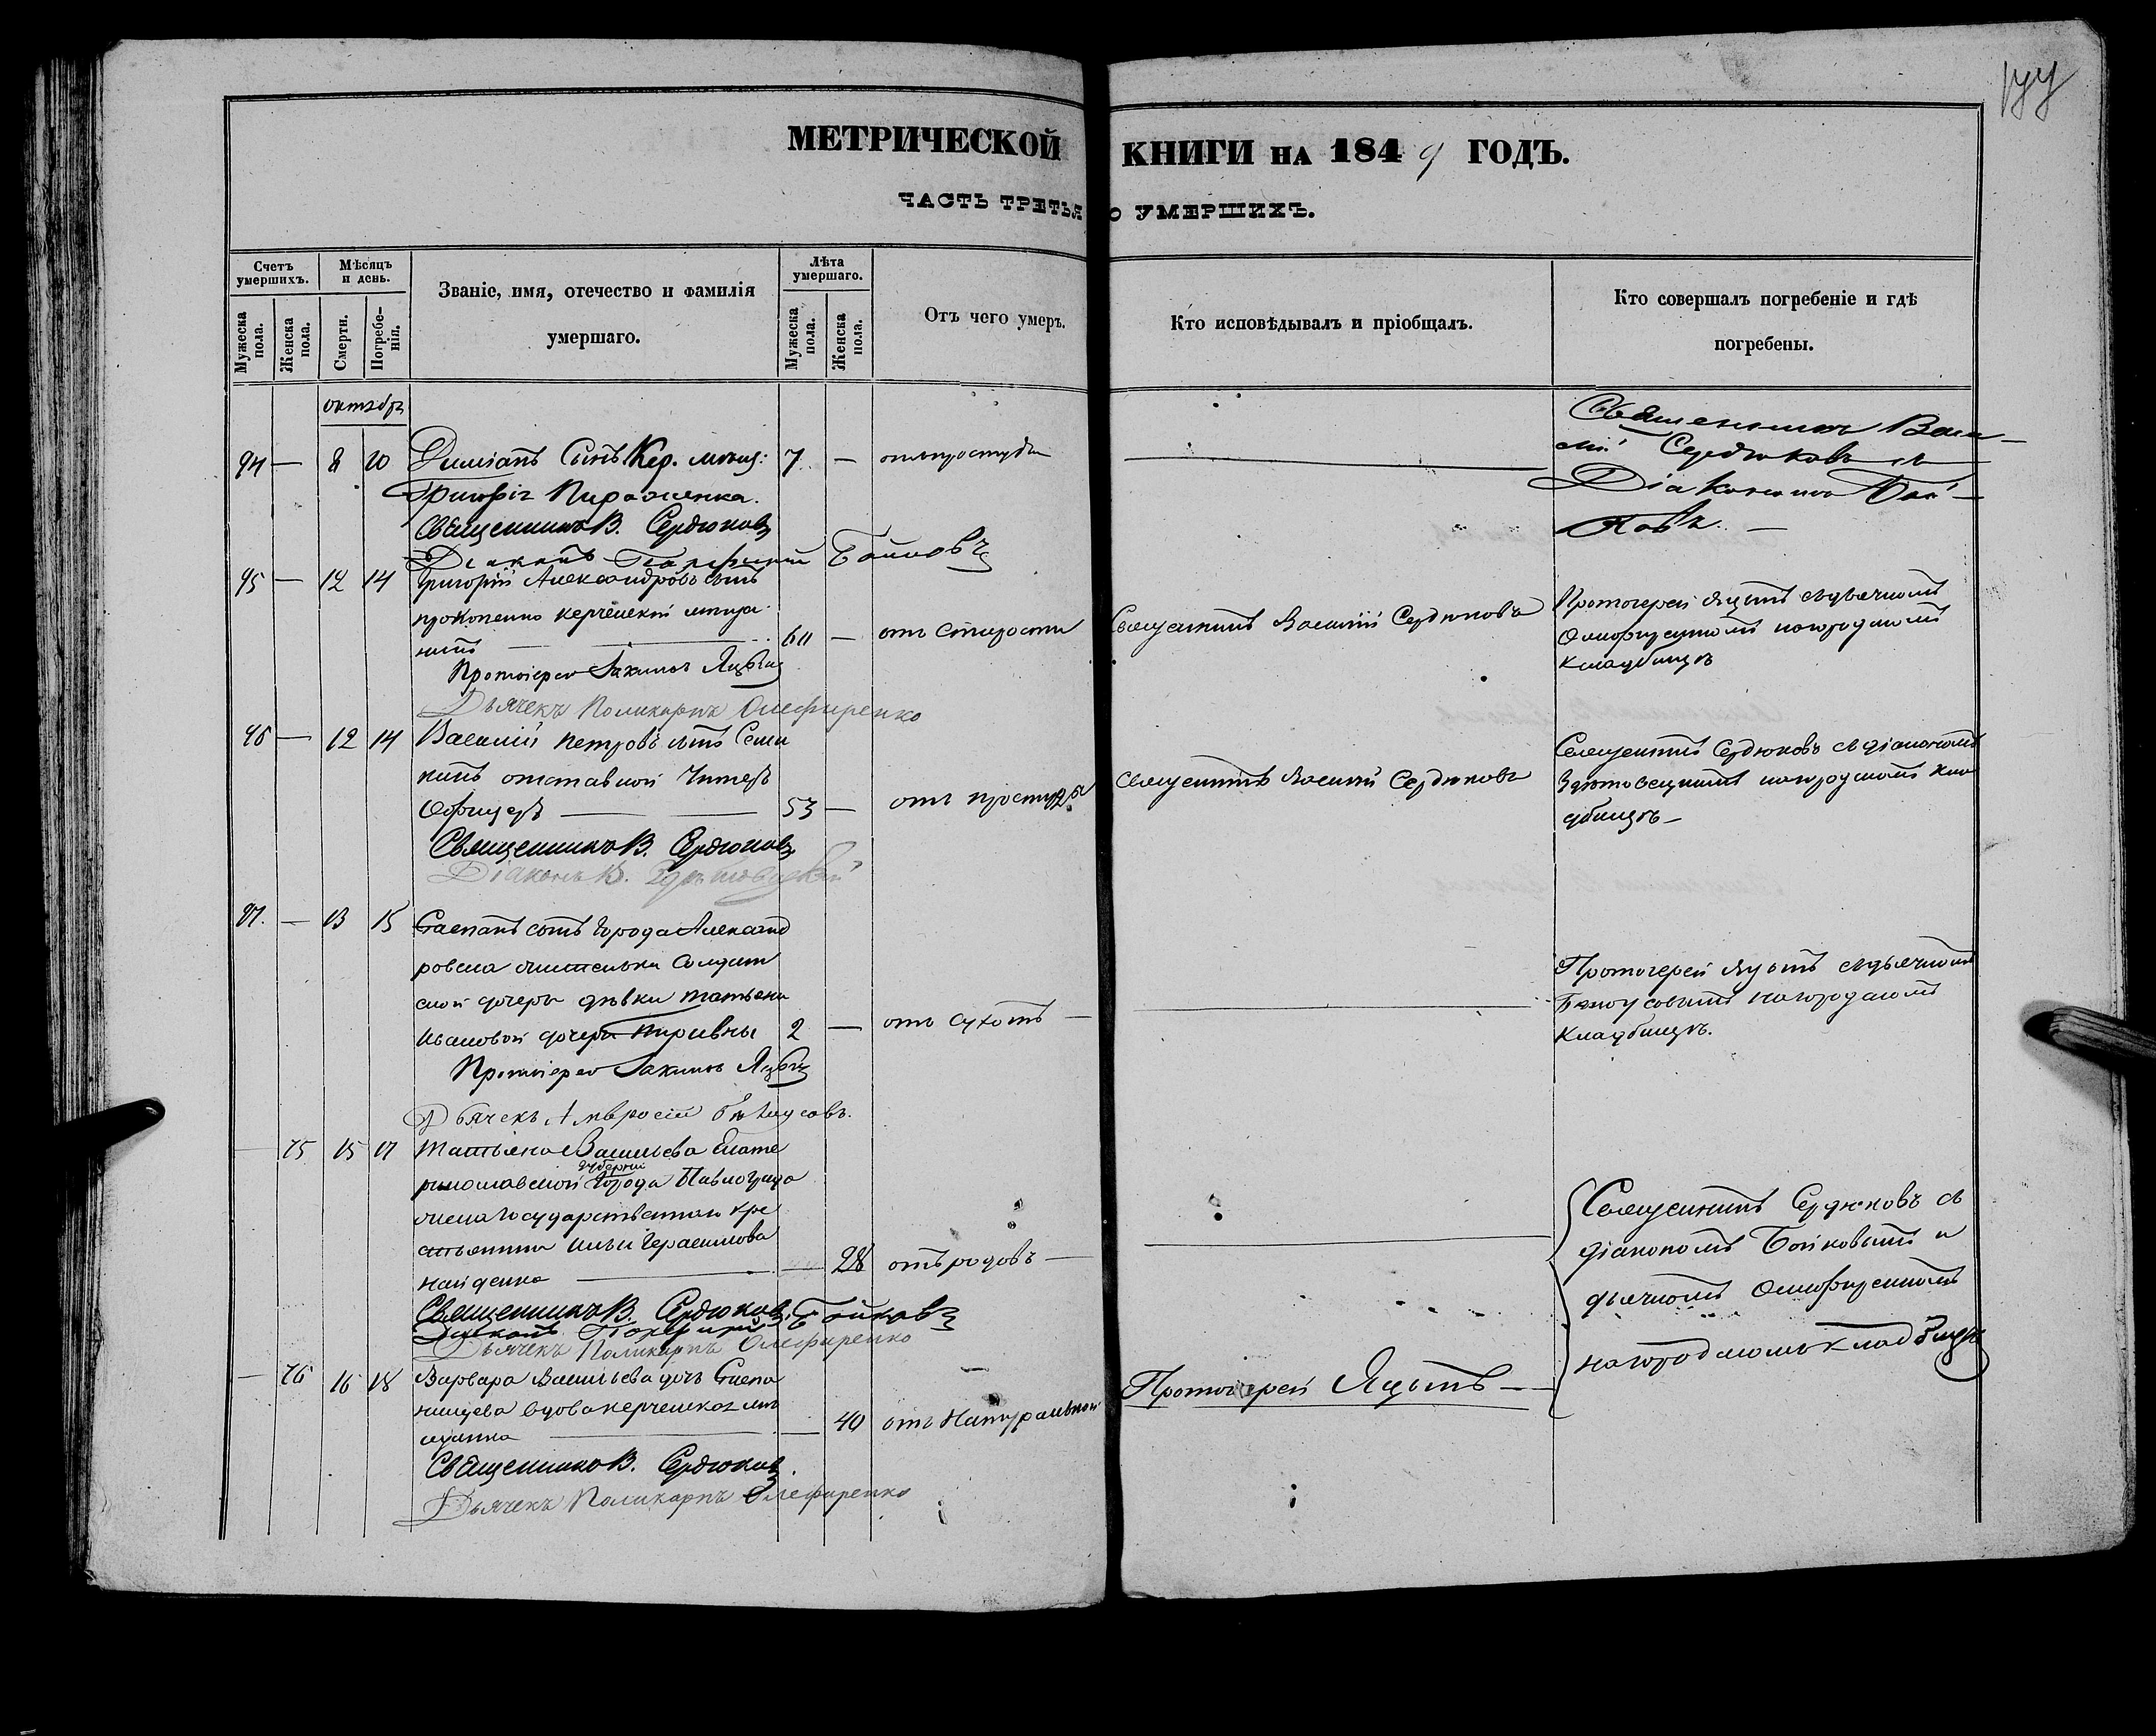 МЕТРИЧЕСКОЙ КНИГИ НА 1849 ГОДЪ.
ЧАСТЬ ТРЕТЬЯ О УМЕРШИХЪ.
Счетъ умершихъ.
Мужеска пола.
Женска пола.
Мѣсяцъ и день.
Смерти.
Погребенія.
Званіе, имя, отечество и фамилія
умершаго.
Лѣта умершаго.
Мужеска пола.
Женска пола.
Отъ чего умеръ.
Кто исповѣдывалъ и пріобщалъ.
Кто совершалъ погребеніе и гдѣ
погребены.
октябрь
94 — 8 10 Диміанъ Сынъ Кер. мѣщ: 7 — отъ простуды
Григорія
Священникъ В. Сердюковъ
Діаконъ Порфирій Бойковъ
Священникъ Васи-
лій Сердюковъ съ
Діакономъ Бой-
ковъ —
95 — 12 14 Григорій Александровъ сынъ
прокопенко керченскій мѣща-
нинъ — 60 — отъ старости
Протоіерей Іакимъ Яцынъ
Дьячекъ Поликарпъ Олефиренко
Священникъ Василій Сердюковъ
Протоіерей Яцынъ съ дьячкомъ
Олефиренкомъ на городскомъ
кладбищѣ
96 — 12 14 Василій Петровъ сынъ Семи
кинъ отставной Унтеръ
Офицеръ — 53 — отъ простуды
Священникъ В. Сердюковъ
Діаконъ В.
Священникъ Василій Сердюковъ
Священникъ Сердюковъ съ діакономъ
на городскомъ кла
дбищѣ —
97. — 13 15 Степанъ сынъ города Александ
ровска Солдат
ской дочери дѣвки татьяны
Ивановой дочери 2 — отъ сухотъ —
Протоіерей Іакимъ Яцынъ
Дьячекъ Амвросій Бѣлоусовъ.
Протоіерей Яцынъ съ дьячкомъ
Бѣлоусовымъ на городскомъ
Кладбищѣ.
— 75 15 17 Татьяна Васильева Екате
ринославской губерніи города Павлограда
государственнаго кре
стьянина Ильи Герасимова
найденко — 28 отъ родовъ —
Священникъ В. Сердюковъ
Діаконъ Порфирій Бойковъ
Дьячекъ Поликарпъ Олефиренко
Священникъ Сердюковъ съ
діакономъ Бойковымъ и
дьячкомъ Олефиренкомъ
на городскомъ кладбищѣ
— 76 16 18 Варвара Васильева дочь Степа
нищева вдова керченскаго мѣ
щанина — 40 отъ Натуральной
Священникъ В. Сердюковъ.
Дьячекъ Поликарпъ Олефиренко
Протоіерей Яцынъ —